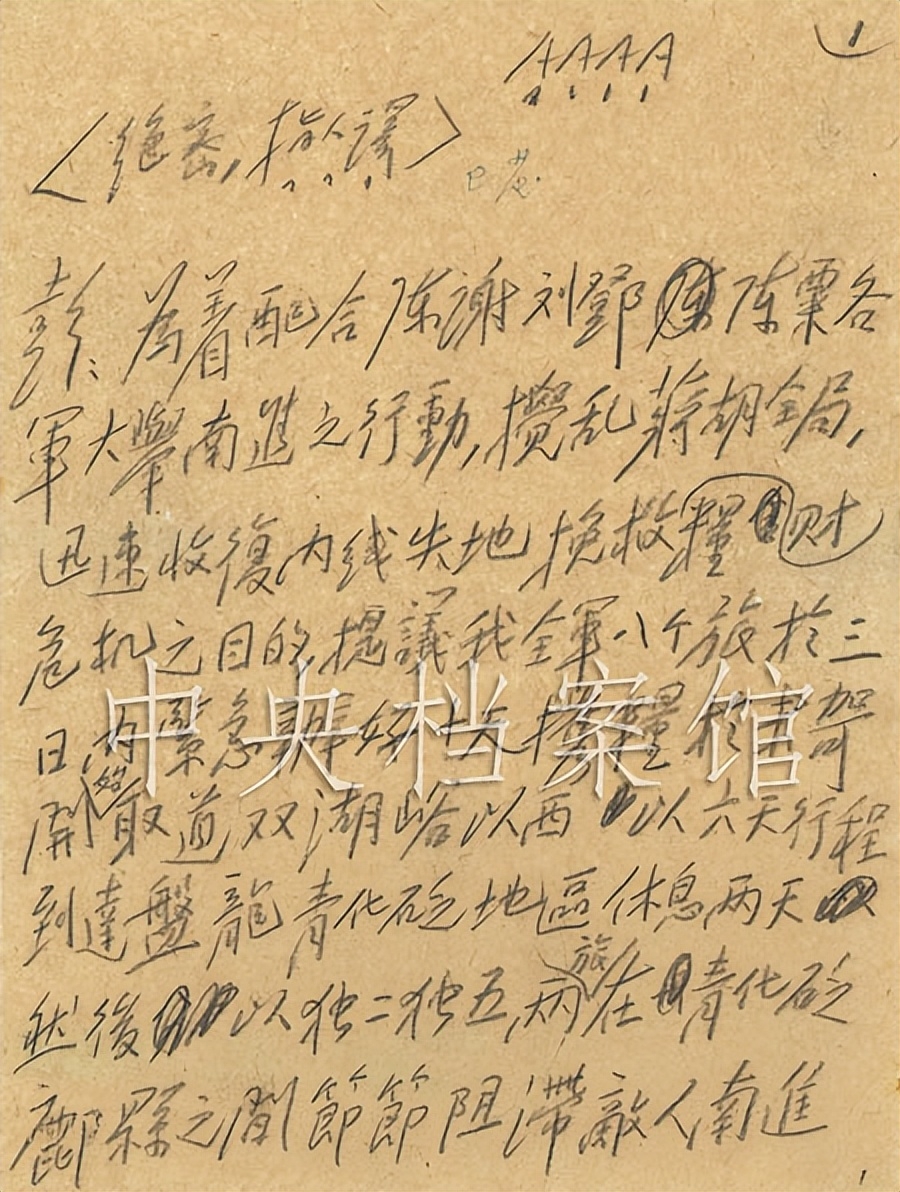 1
AAAA
〈绝密,指人譯〉
已发
彭:为着配合陈謝刘鄧陈粟各
軍大舉南進之行動,攪乱蔣胡全局,
迅速收復内线失地挽救糧财
危机之目的,提議我全軍八个旅於三
日内緊急弄好十天 糧
開始取道双湖峪以西以六天行程
到達盤龍青化砭地區休息两天
然後以独二独五两旅在青化砭
鄜縣之間節節阻滞敵人南進
中央档案馆
1